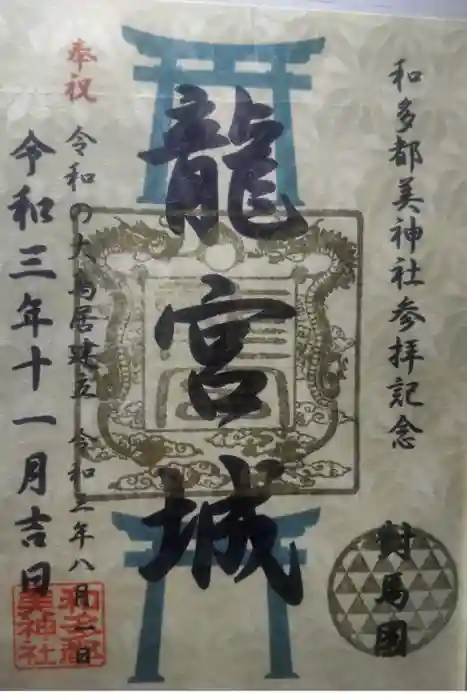 和多都美神社参拝記念
對馬國
龍宮城
奉祝
令和の大鳥居建立 令和二年八月一日
令和三年十一月吉日
和多都
美神社